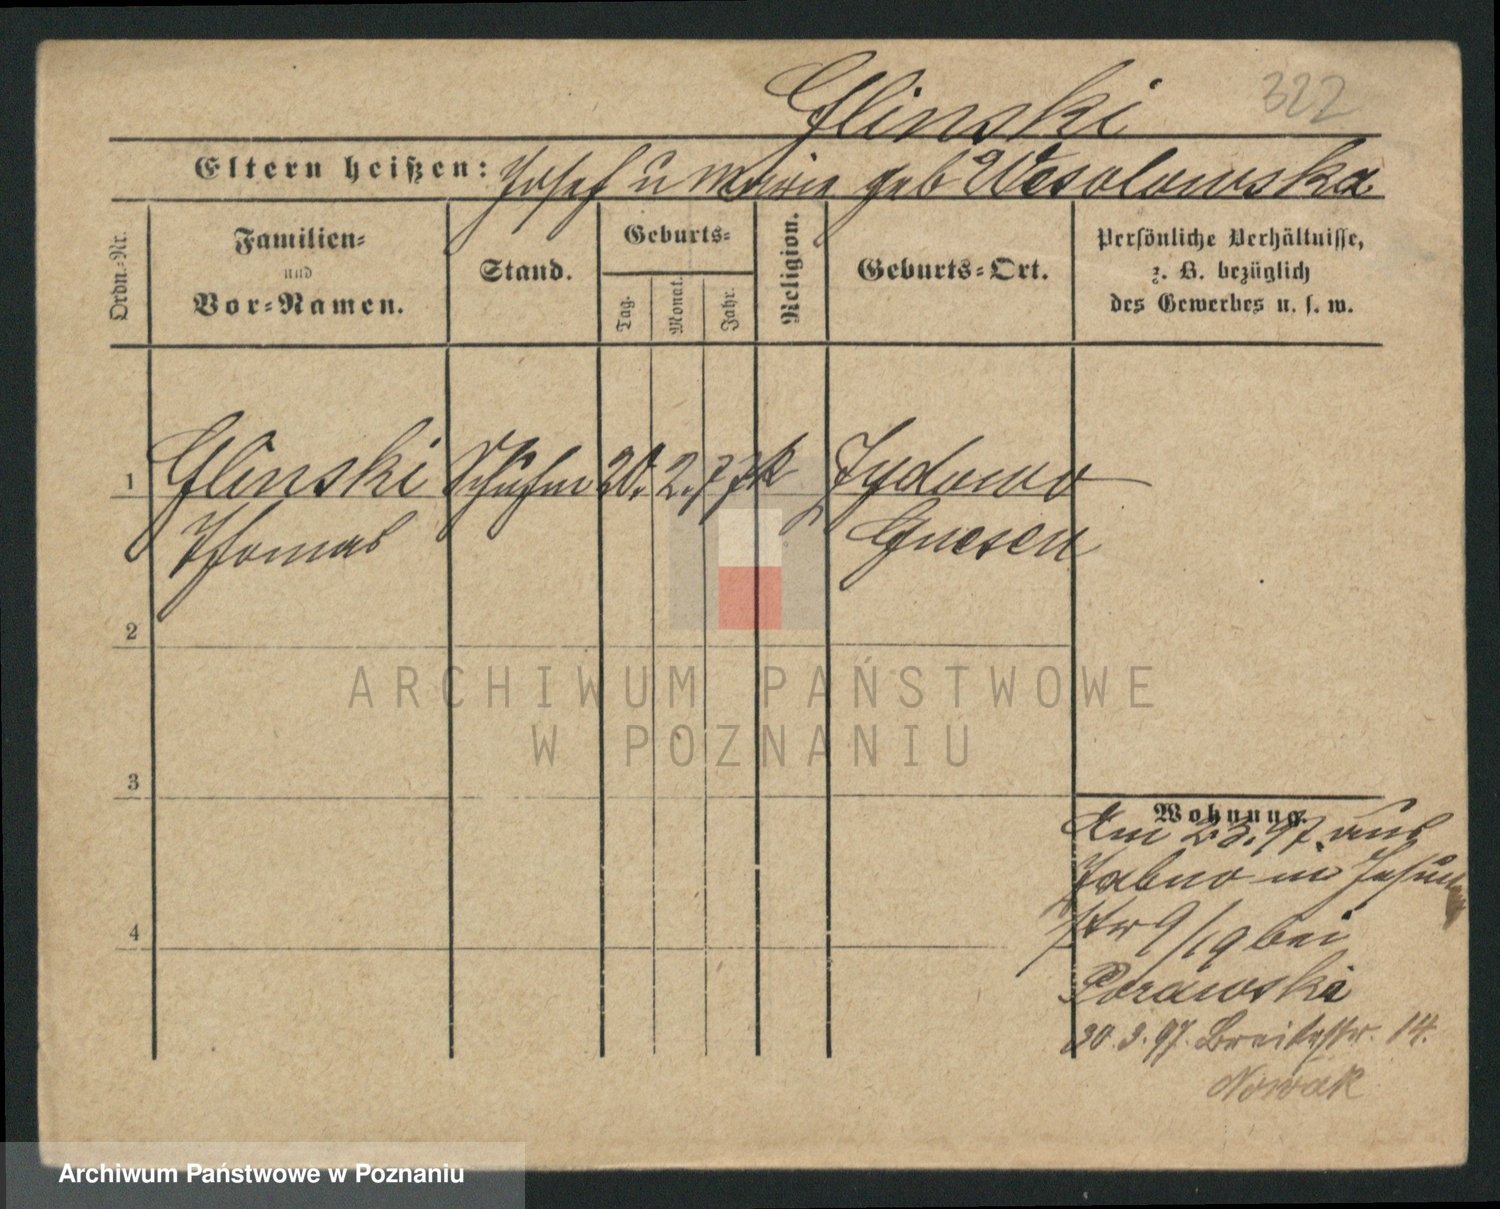 Glinski 322
Eltern heißen: Josef u Marie geb Wesolowska
Ordn.-Nr.
Familien-
und
Vor-Namen.
Stand.
Geburts-
Tag.
Monat.
Jahr.
Religion.
Geburts-Ort.
Persönliche Verhältnisse,
z. B. bezüglich
des Gewerbes u. s. w.
1 Glinski 20. 2. 77 k Zydowo
Thomas Gnesen
2
3
4
ARCHIWUM PAŃSTWOWE
W POZNANIU
Wohnung.
Am 2.3.97. aus
9/19 bei
Porawski
20.3.97. Breitestr. 14.
Nowak
Archiwum Państwowe w Poznaniu